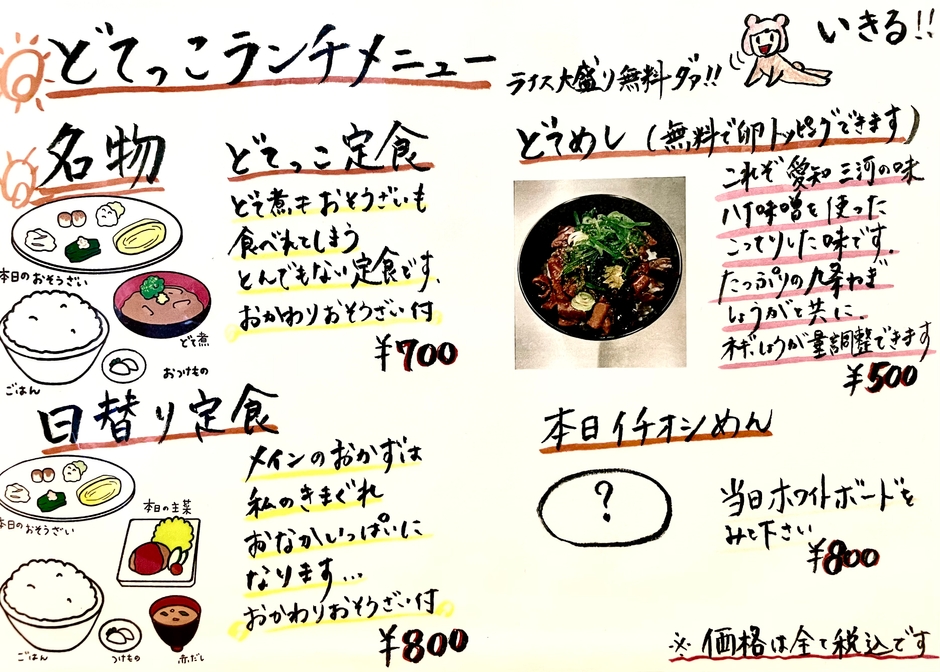 どてっこランチメニュー
ライス大盛り無料ダァ!!
いきる!!
名物
どてっこ定食
どて煮もおそうざいも
食べれてしまう
とんでもない定食です。
おかわりおそうざい付
¥700
本日のおそうざい
どて煮
おつけもの
ごはん
どてめし(無料で卵トッピングできます)
これぞ愛知三河の味
八丁味噌を使った
こってりした味です。
たっぷりの九条ねぎ
しょうがと共に。
ネギ、しょうが量調整できます
¥500
日替り定食
メインのおかずは
私のきまぐれ
おなかいっぱいに
なります…
おかわりおそうざい付
¥800
本日のおそうざい
本日の主菜
ごはん
つけもの
赤だし
本日イチオシめん
?
当日ホワイトボードを
みて下さい
¥800
※価格は全て税込です